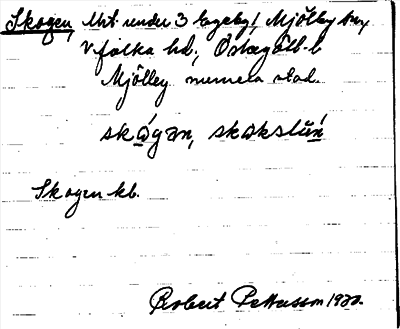 Skogen, Utt. under 3 Egeby, Mjölby sn,
Vifolka hd., Östergötl. l.
Mjölby numera stad.
skógan, skakslún
Skogen kb.
Robert Pettersson 1920.